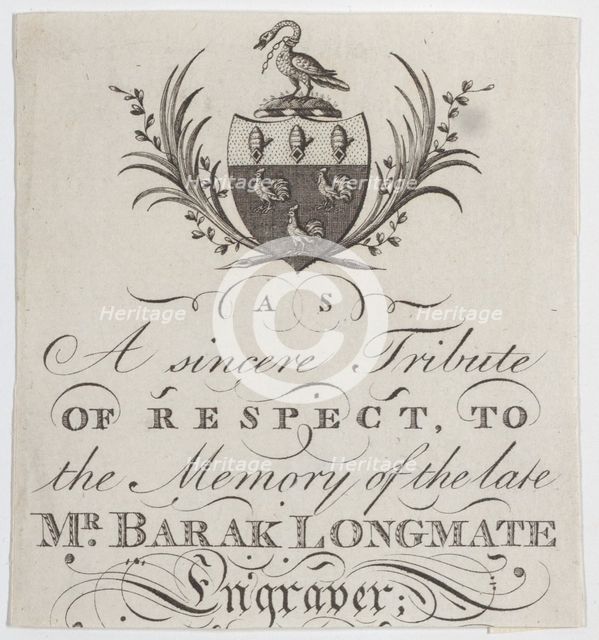 Heritage Heritage
©
A S
Heritage Heritage
A sincere Tribute
OF RESPECT, TO
the Memory of the late
Heritage Heritage
Mr. BARAK LONGMATE
Engraver;